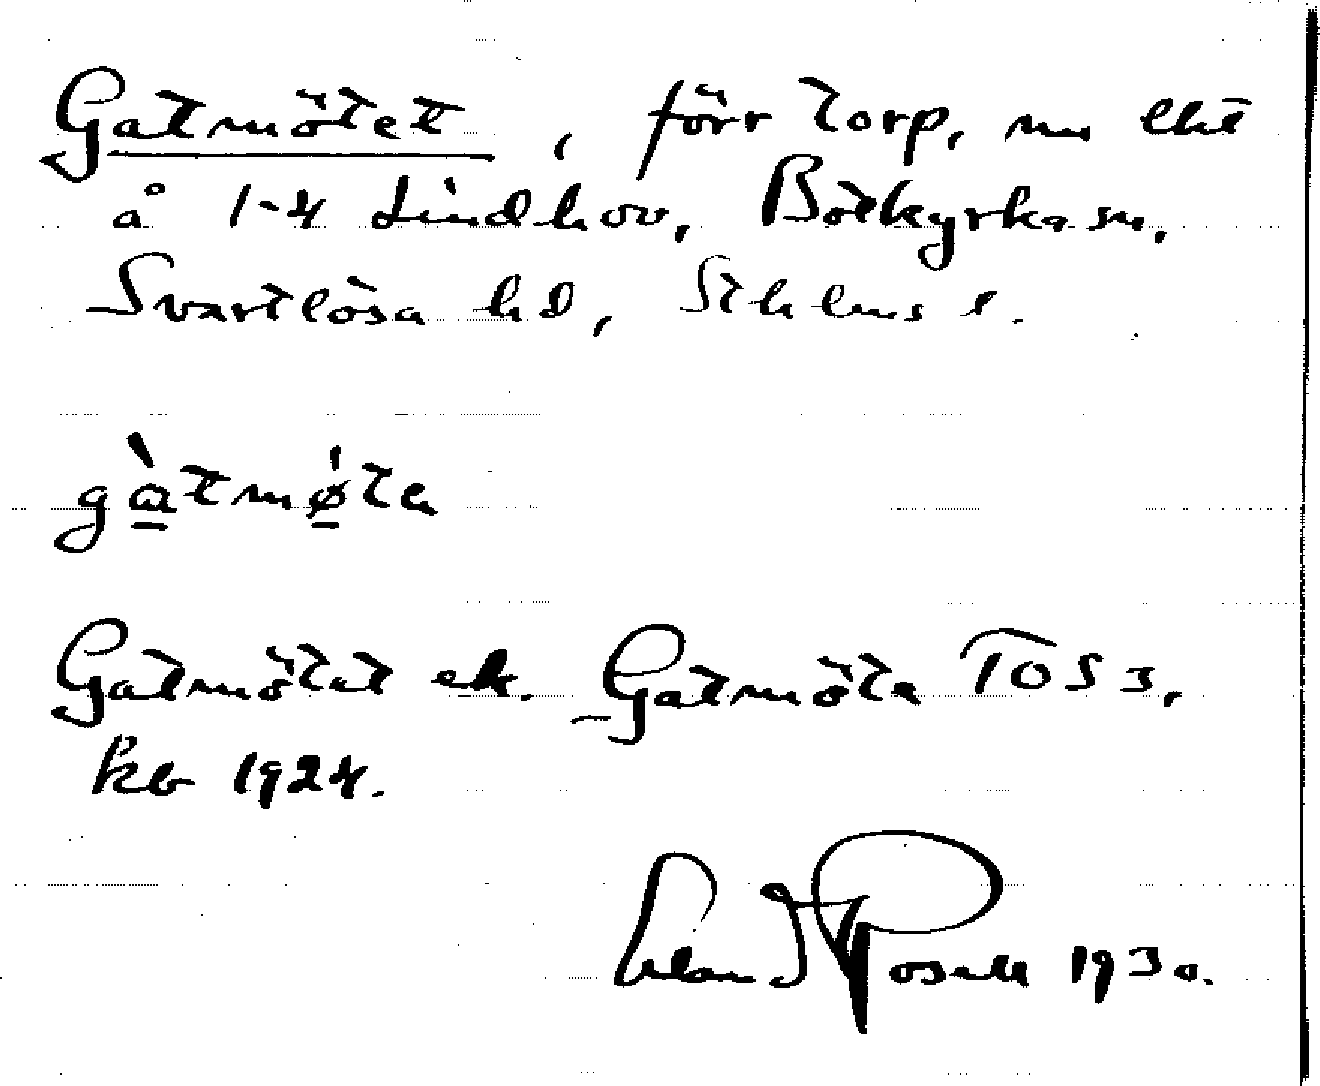 Gatmötet, förr torp, nu lht
å 1-4 Lindhov, Botkyrka sn,
Svartlösa hd, Sthlms l.
gàtmø̀ta
Gatmötet ek. – Gatmöta TOS 3,
kb 1924.
Rosell 1930.